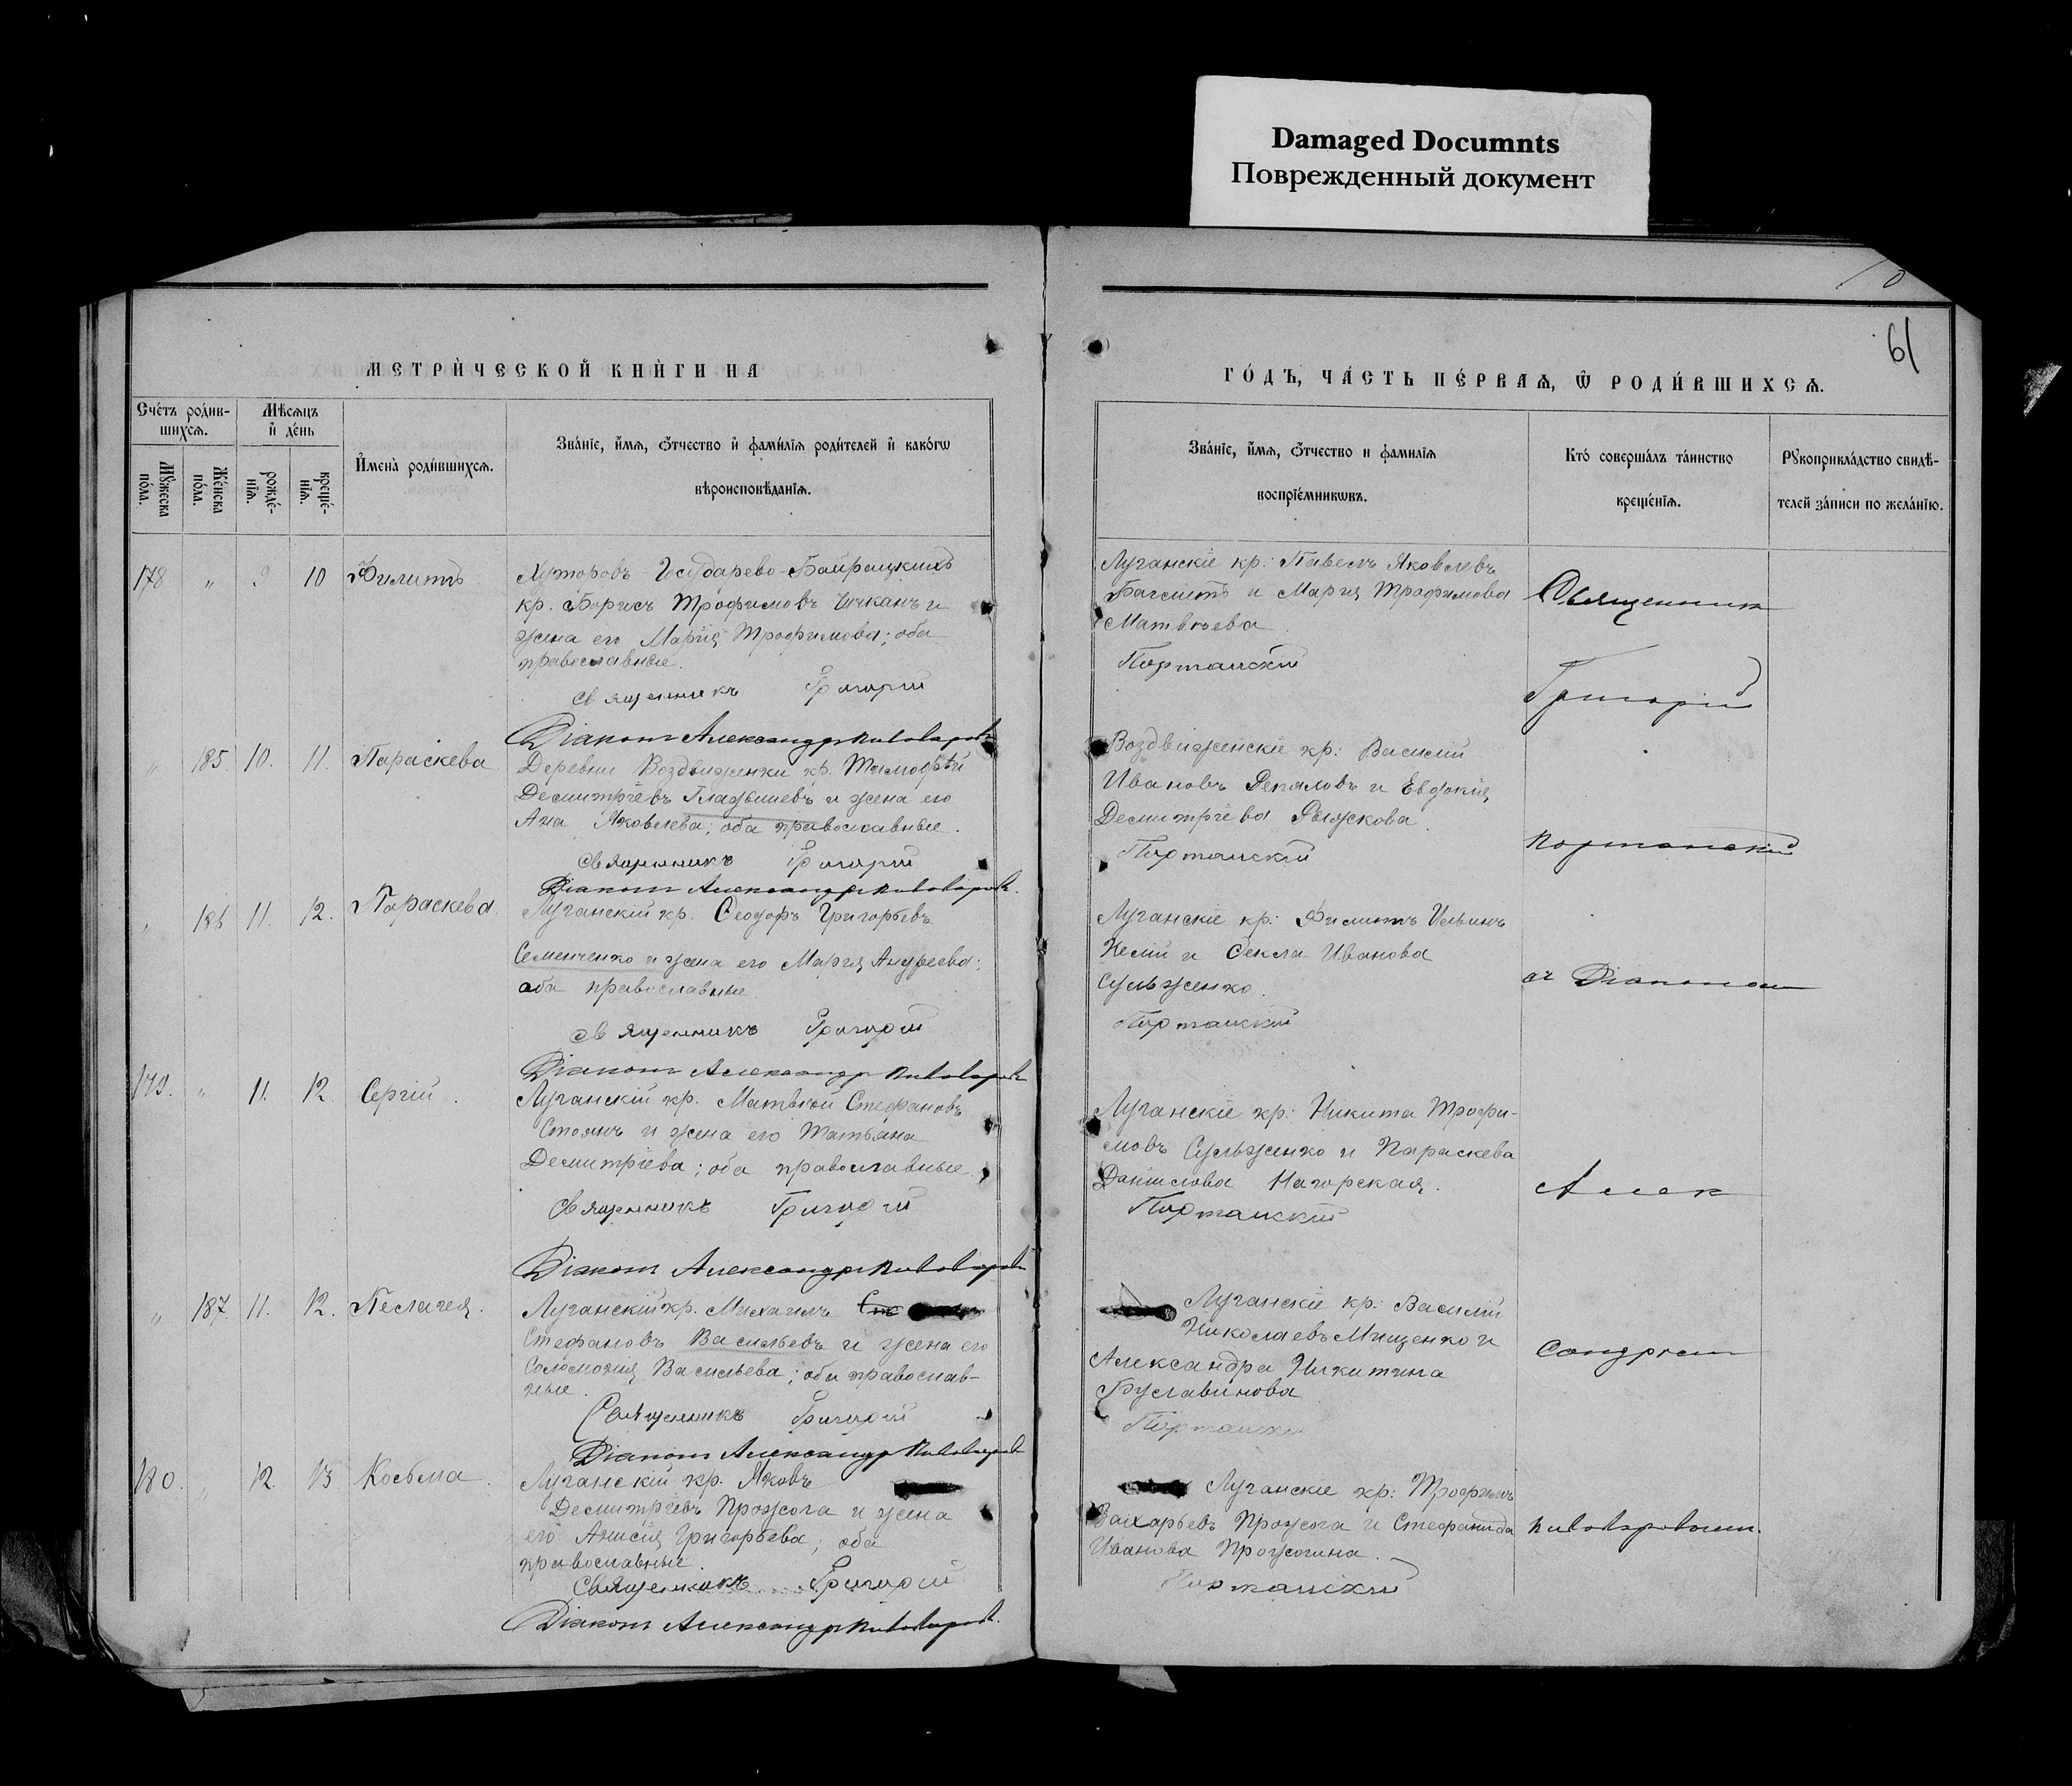 Damaged Documnts
Поврежденный документ
61
МЕТРИЧЕСКОЙ КНИГИ НА
ГОДЪ, ЧАСТЬ ПЕРВАЯ, Ѿ РОДИВШИХСЯ.
Счетъ родив-
шихся.
Мѣсяцъ
и день
Мужеска
пола.
Женска
пола.
рожде-
нія.
креще-
нія.
Имена родившихся.
Званіе, имя, отчество и фамилія родителей и какогѡ
вѣроисповѣданія.
Званіе, имя, отчество и фамилія
воспріемникѡвъ.
Кто совершалъ таинство
крещенія.
Рукоприкладство свидѣ-
телей записи по желанію.
178 " 9 10 Филиппъ
Хуторовъ Государево-Байрацкихъ
кр. Борисъ Трофимовъ и
жена его Марія Трофимова; оба
православные.
Священникъ Григорій
Діаконъ Александръ Пивоваровъ
Луганскіе кр: Павелъ Яковлевъ
и Марія Трофимова
Матвѣева
Портанскій
" 185. 10. 11. Параскева
Деревни Воздвиженки кр. Тимофѣй
Димитріевъ Гладышевъ и жена его
Анна Яковлева; оба православные.
Священникъ Григорій
Діаконъ Александръ Пивоваровъ.
Воздвиженскіе кр: Василій
Ивановъ Репяловъ и Евдокія
Димитріева Рыжкова.
Портанскій
" 186 11. 12. Параскева.
Луганскій кр. Ѳеодоръ Григорьевъ
Семенченко и жена его Марія Андреева;
оба православные
Священникъ Григорій
Діаконъ Александръ Пивоваровъ
Луганскіе кр: Филиппъ Ильинъ
и Ѳекла Иванова
Сульженко.
Портанскій
179. " 11. 12 Сергій.
Луганскій кр. Матвѣй Стефановъ
Стоянъ и жена его Татьяна
Димитріева; оба православные.
Священникъ Григорій
Діаконъ Александръ Пивоваровъ
Луганскіе кр: Никита Трофи-
мовъ Сульженко и Параскева
Даніилова Нагорская.
Портанскій
" 187 11. 12. Пелагея.
Луганскій кр. Михаилъ
Стефановъ Васильевъ и жена его
Соломонія Васильева; оба православ-
ные.
Священникъ Григорій
Діаконъ Александръ Пивоваровъ
Луганскіе кр: Василій
Николаевъ Мищенко и
Александра Никитина
Буславинова
Портанскій
180. " 12. 13 Косьма.
Луганскій кр. Яковъ
Димитріевъ Прожога и жена
его Анисія Григорьева; оба
православные.
Священникъ Григорій
Діаконъ Александръ Пивоваровъ.
Луганскіе кр: Трофимъ
Захарьевъ Прожога и Стефанида
Иванова Прожогина.
Портанскій
Священникъ
Григорій
Портанскій
съ Діакономъ
Алек
сандромъ
Пивоваровымъ.